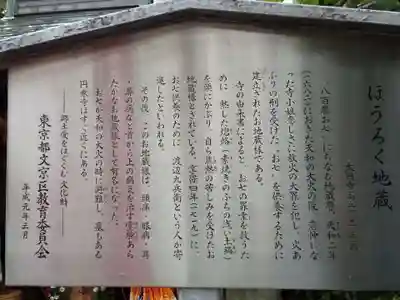 ほうろく地蔵
大円寺 向丘一－一一－三
八百屋お七にちなむ地蔵尊。天和二年
（一六八二）におきた天和の大火の後、恋仲にな
った寺小姓恋しさに放火の大罪を犯し、火あ
ぶりの刑を受けた"お七"を供養するために
建立されたお地蔵様である。
寺の由来書によると、お七の罪業を救うた
めに、熱した焙烙（素焼きのふちの浅い土鍋）
を頭にかぶり、自ら焦熱の苦しみを受けたお
地蔵様とされている。享保四年（一七一九）に、
お七供養のために、渡辺九兵衛という人が寄
進したといわれる。
その後、このお地蔵様は、頭痛・眼病・耳
・鼻の病など首から上の病気を治す霊験あら
たかなお地蔵様として有名になった。
お七が天和の大火の時に避難し、墓もある
円乗寺はすぐ近くにある。
――郷土愛をはぐくむ文化財――
東京都文京区教育委員会
平成元年三月